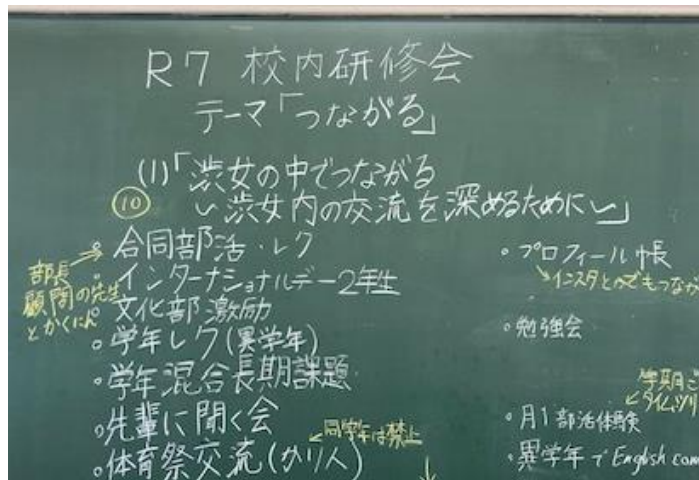 R7 校内研修会
テーマ「つながる」
(1)「渋女の中でつながる
〜渋女内の交流を深めるために〜」
⑩
合同部活・レク
部長
顧問の先生
とかくにん
インターナショナルデー2年生
文化部激励
学年レク(異学年)
学年混合長期課題
先輩に聞く会
同学年は禁止
体育祭交流(かり人)
プロフィール帳
インスタとかでもつなが
勉強会
学期ご
タイムツリ
月1部活体験
異学年でEnglish com